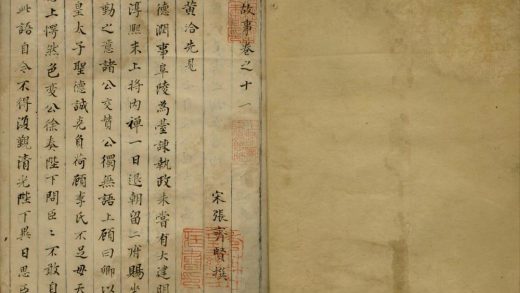 故事卷之十一
宋張齊賢撰
黃洽先見
德潤事阜陵為臺諫執政未嘗有大建明
淳熙末上將內禪一日退朝留二府賜坐
動之意諸公交贊公獨無語上顧曰卿以
皇太子聖德誠克負荷顧李氏不足母天
上愕然色變公徐奏陛下問臣〻不敢自
此語自今不得復觀清光陛下異日思臣